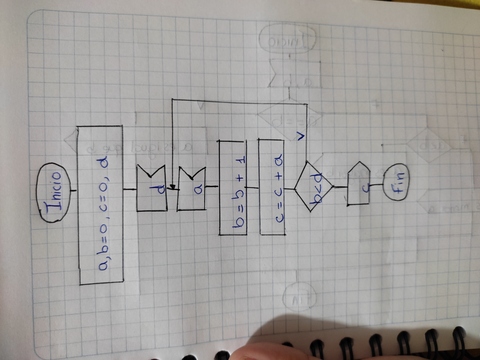 Inicio
a, b=0, c=0, d
d
a
b = b + 1
c = c + a
b<d
v
c
Fin